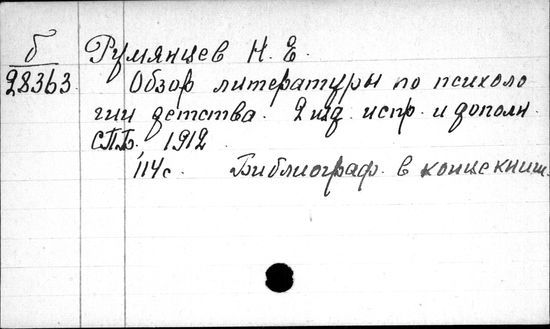 б Румянцев Н. Е.
28363 Обзор литературы по психоло
гии детства. 2 изд. испр. и дополн.
СПБ. 1912.
114с. Библиограф. в конце книги.